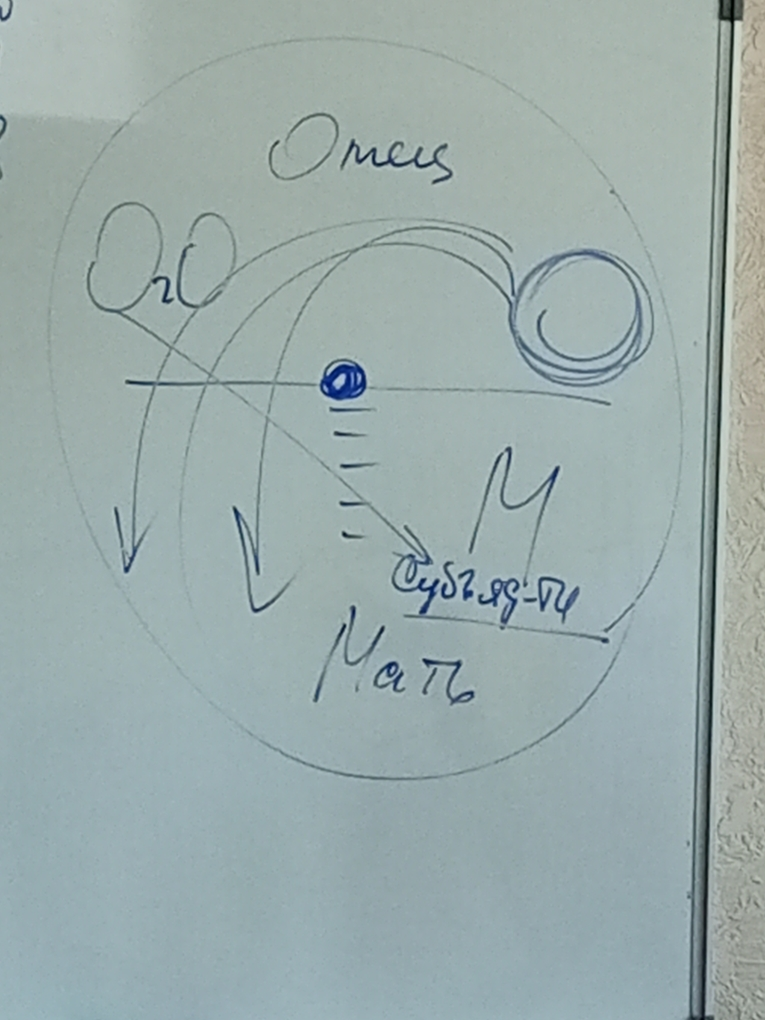 Отец
О2О
М
Субъяд-ты
Мать